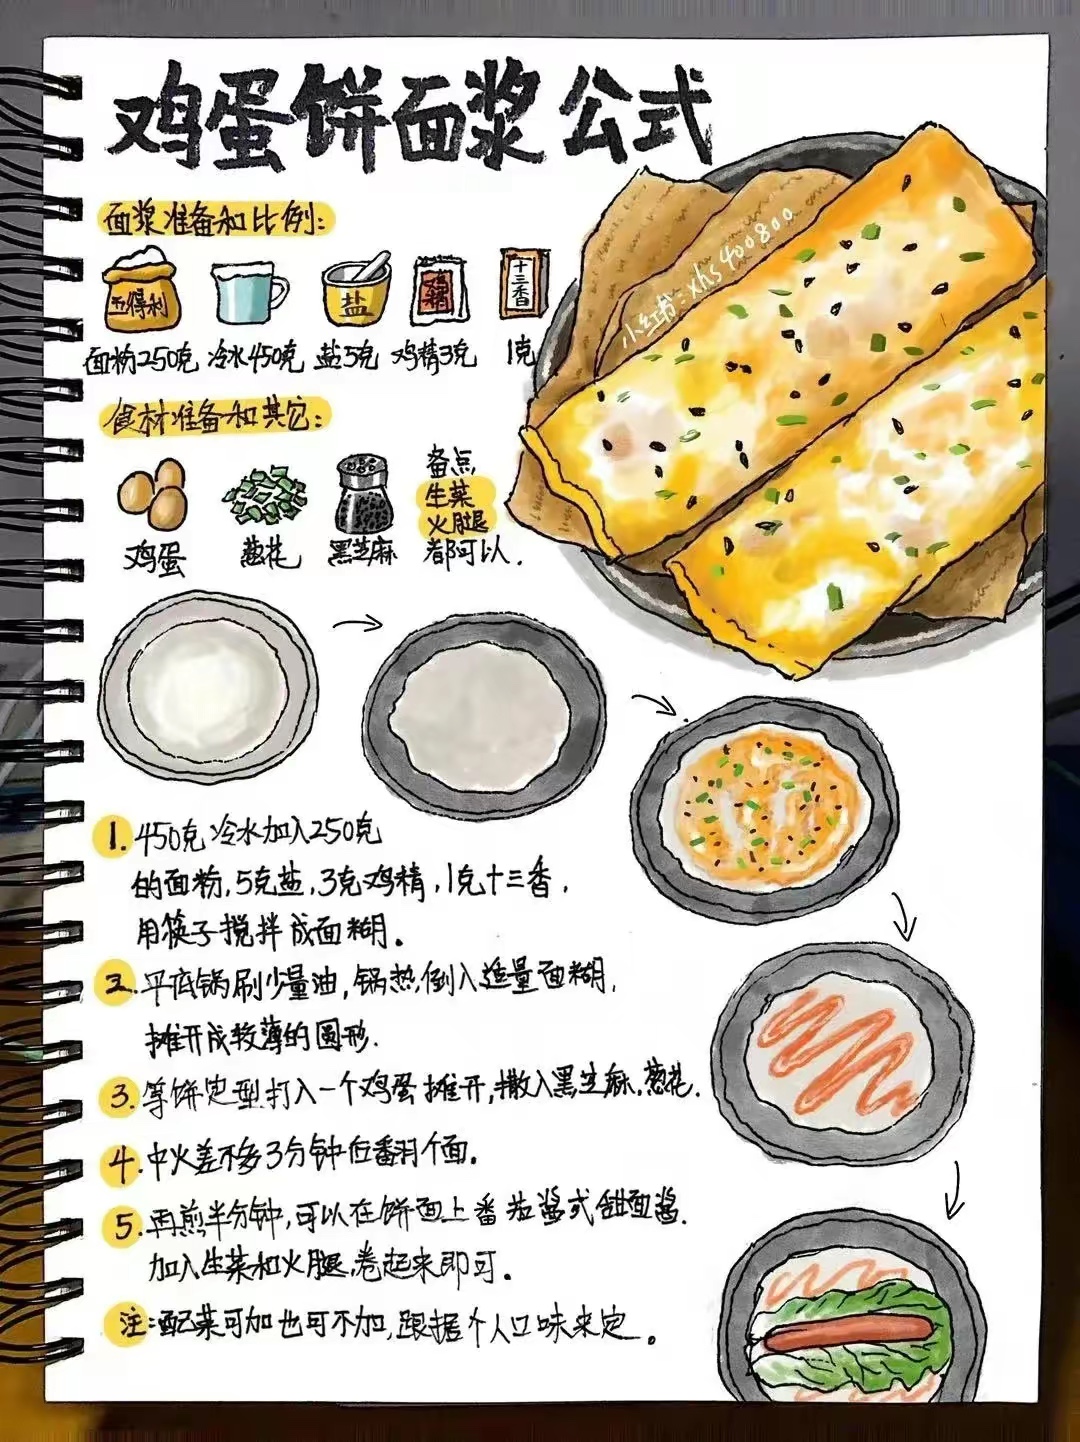 鸡蛋饼面浆公式
面浆准备和比例:
五得利
盐
鸡精
十三香
面粉250克 冷水450克 盐5克 鸡精3克 1克
小红书:xhs400800
食材准备和其它:
鸡蛋 葱花 黑芝麻
备点
生菜
火腿
都可以.
1. 450克冷水加入250克
的面粉,5克盐,3克鸡精,1克十三香,
用筷子搅拌成面糊。
2. 平底锅刷少量油,锅热,倒入适量面糊,
摊开成较薄的圆形.
3. 等饼定型打入一个鸡蛋摊开,撒入黑芝麻,葱花.
4. 中火差不多3分钟后翻个面。
5. 再煎半分钟,可以在饼面上番茄酱或甜面酱.
加入生菜和火腿,卷起来即可。
注:配菜可加也可不加,跟据个人口味来定。